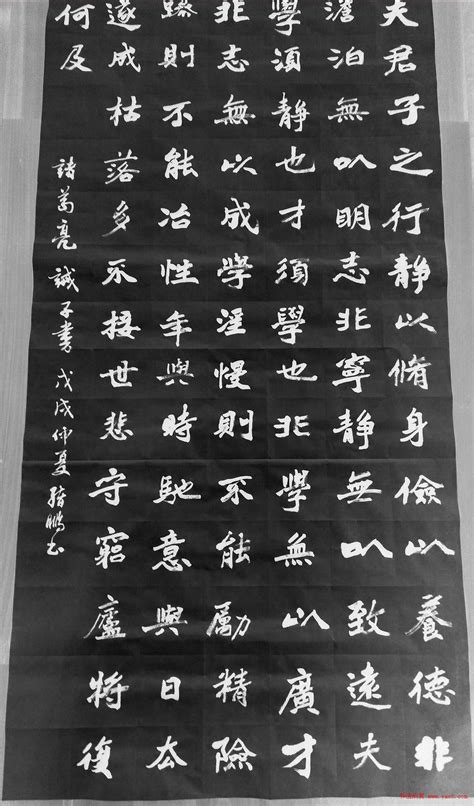 夫君子之行靜以脩身儉以養德非
澹泊無以明志非寧靜無以致遠夫
學須靜也才須學也非學無以廣才
非志無以成學淫慢則不能勵精險
躁則不能冶性年與時馳意與日去
遂成枯落多不接世悲守窮廬將復
何及
諸葛亮 誡子書 戊戌仲夏 鵬書